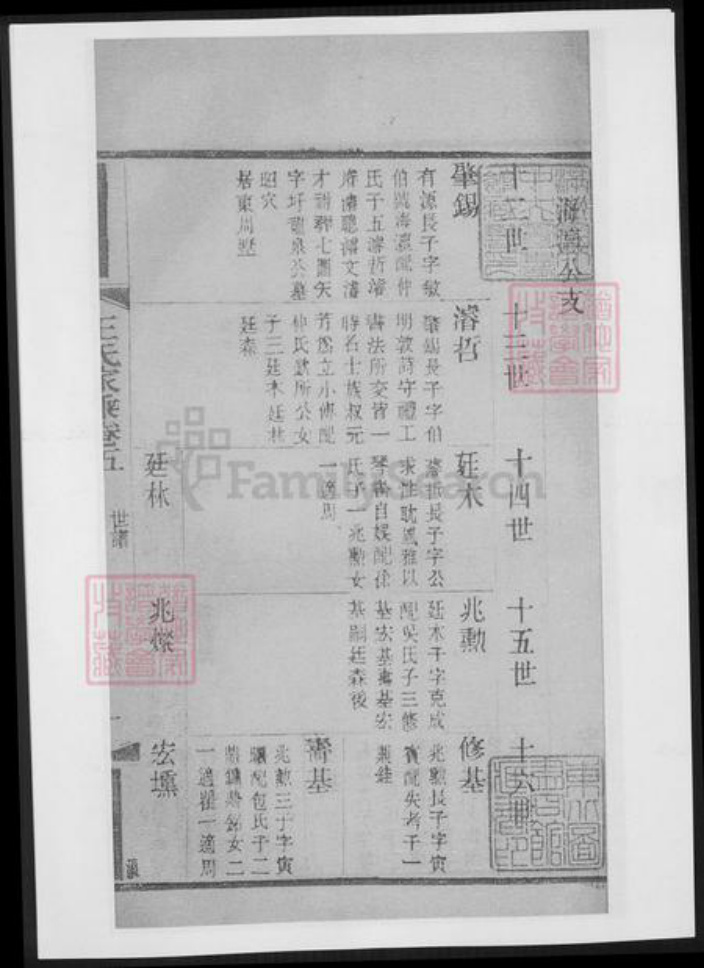 海瀛公支
十二世
十三世
十四世
十五世
十六世
肇錫
有源長子字敏
伯號海瀛配仲
氏子五濬哲濬
濬聰濬文濬
才詩聯七圖矢
字圩龍泉公墓
昭穴
居東周墅
濬哲
肇錫長子字伯
明敦詩守禮工
書法所交皆一
時名士族叔元
芳爲立小傳配
仲氏默所公女
子三廷木廷林
廷森
廷木
濬哲長子字公
求性耽風雅以
琴書自娛配孫
氏子一兆勳女
一適周
兆勳
廷木子字克成
配吳氏子三修
基宏基壽基宏
基嗣廷森後
修基
兆勳長子字寅
賓配失考子一
壽基
兆勳三子字寅
驤配包氏子二
女二
一適瞿一適周
廷林
兆燦
宏壎
王氏家乘卷五
世譜
FamilySearch